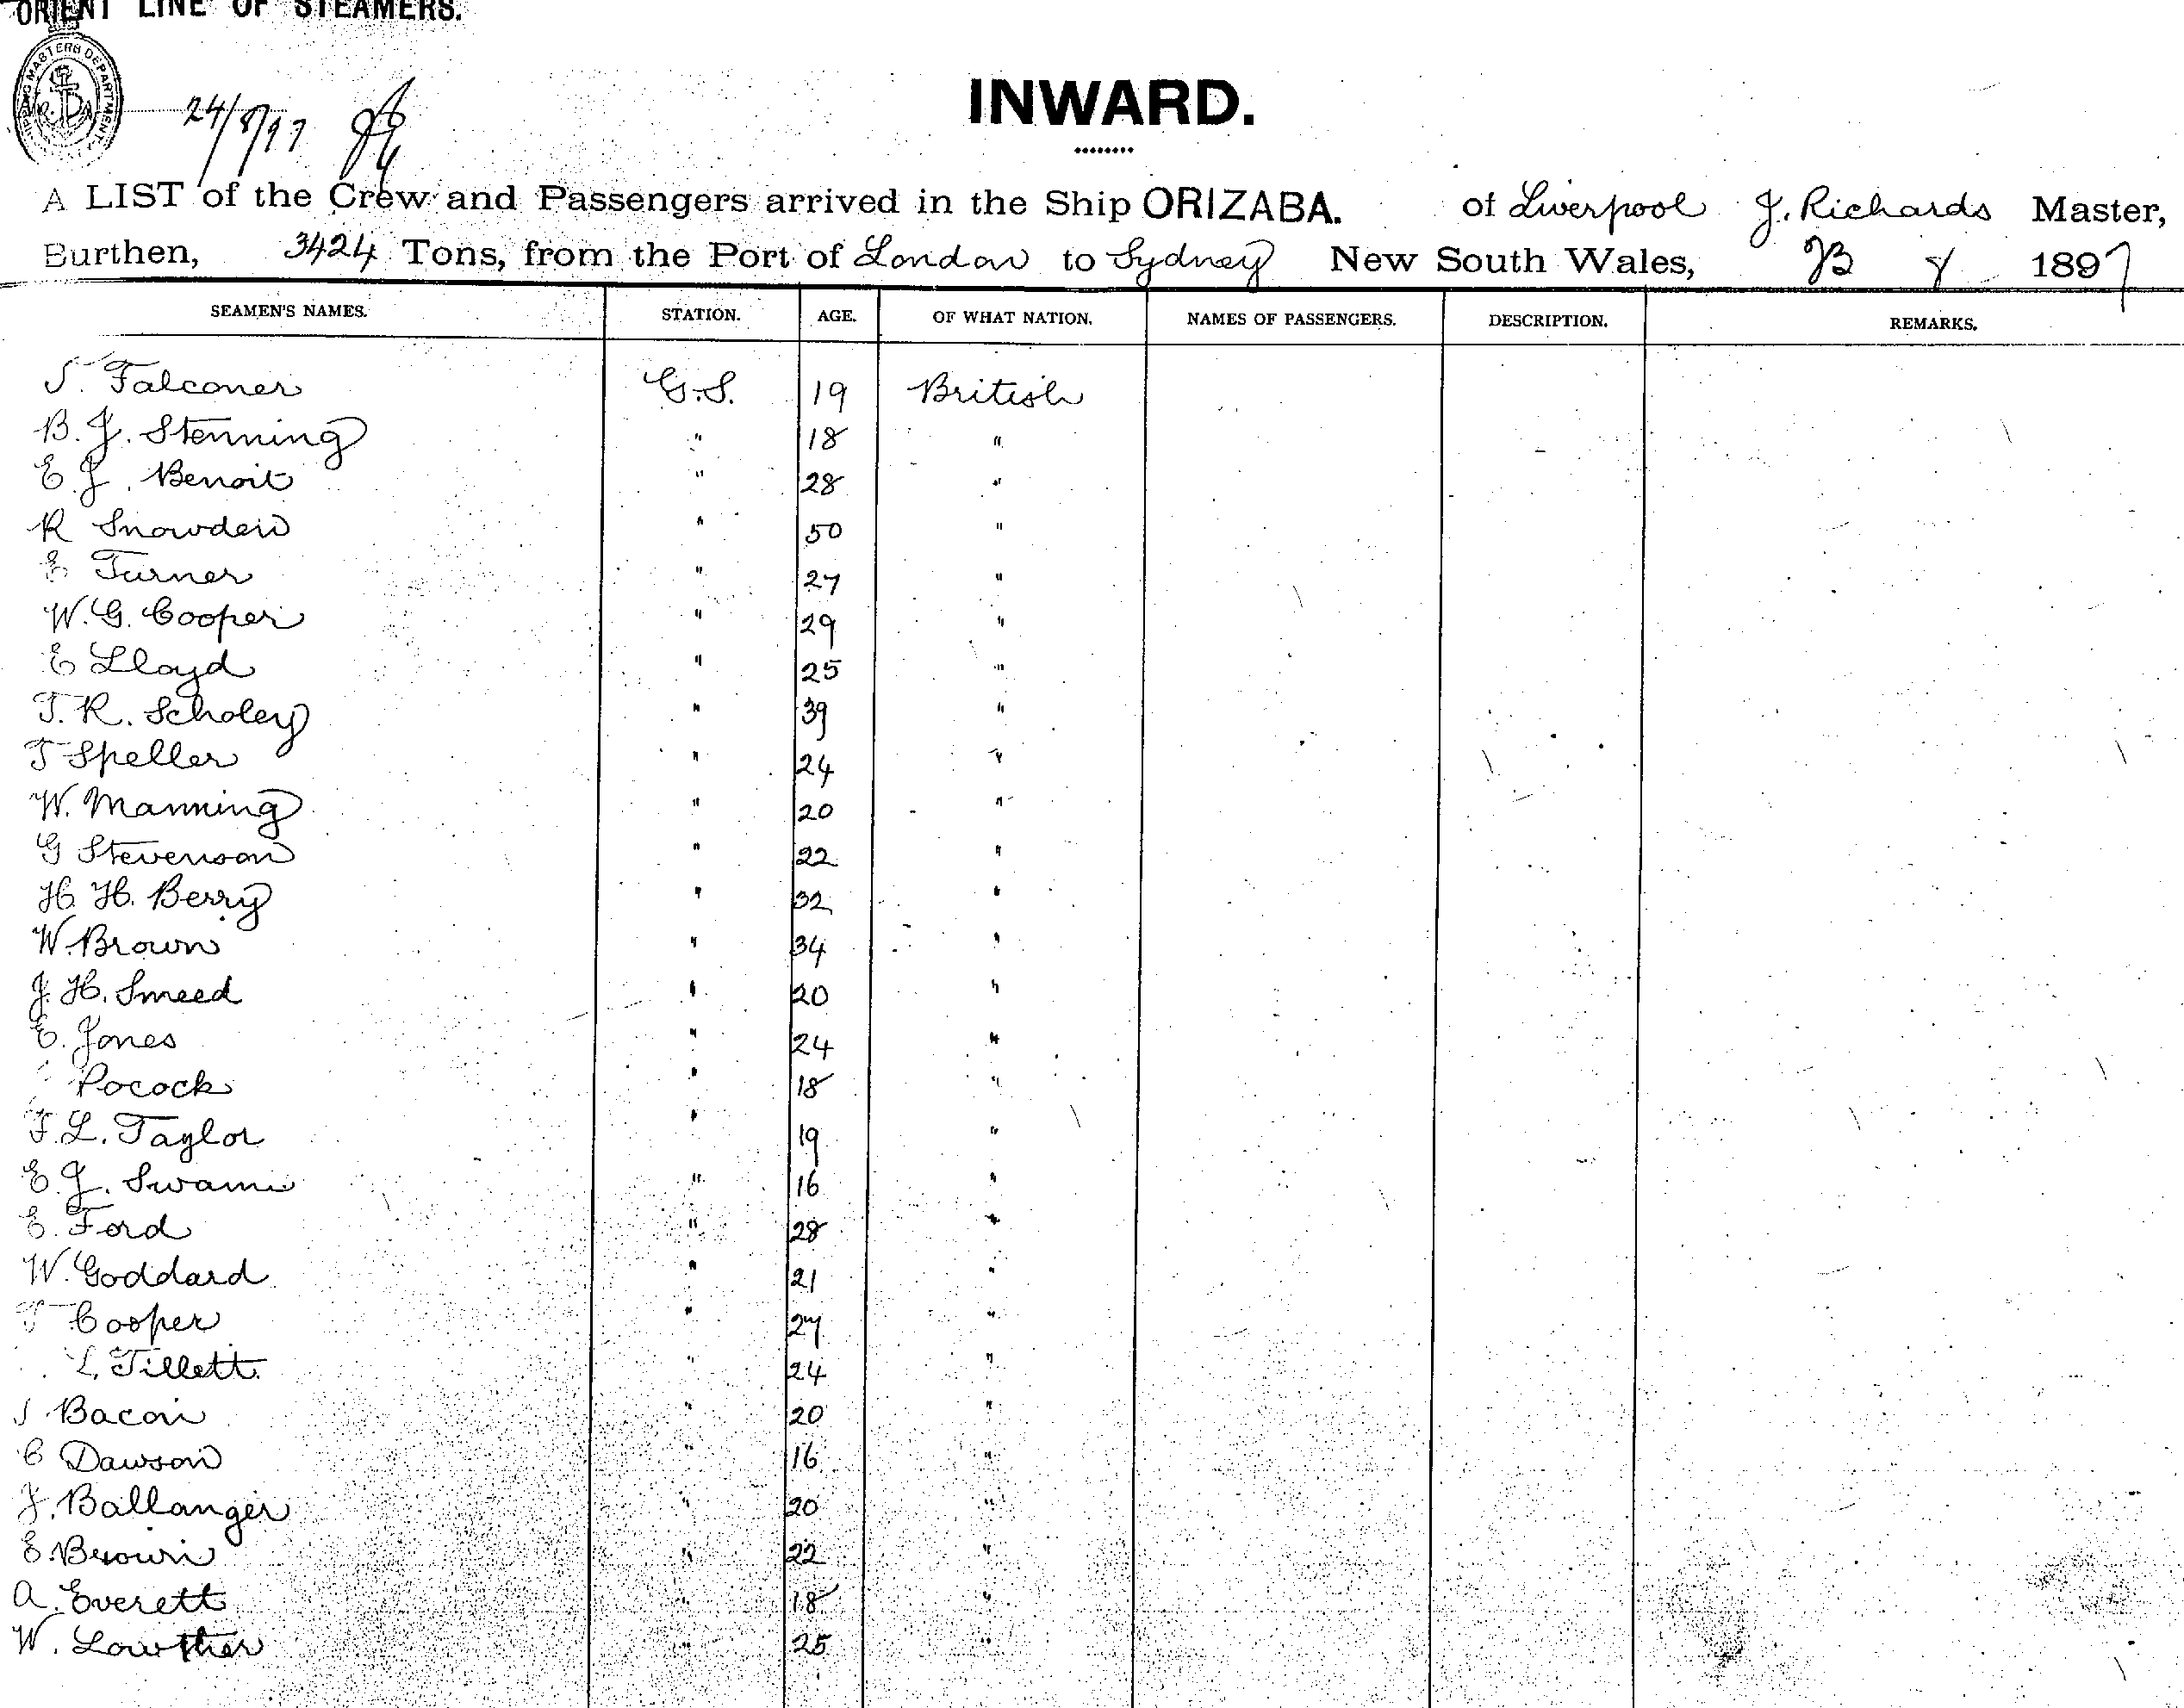 ORIENT LINE OF STEAMERS.
SHIPPING MASTERS DEPARTMENT
24/8/97
INWARD.
A LIST of the Crew and Passengers arrived in the Ship ORIZABA. of Liverpool J. Richards Master,
Burthen, 3424 Tons, from the Port of London to Sydney New South Wales, 23 8 1897
SEAMEN'S NAMES. STATION. AGE. OF WHAT NATION. NAMES OF PASSENGERS. DESCRIPTION. REMARKS.
Falconer G.S. 19 British
B. J. Stenning " 18 "
E. J. Benoit " 28 "
R Snowden " 50 "
E Turner " 27 "
W. G. Cooper " 29 "
E Lloyd " 25 "
T. R. Scholey " 39 "
T Speller " 24 "
W. Manning " 20 "
G Stevenson " 22 "
H. H. Berry " 32 "
W. Brown " 34 "
J. H. Smeed " 20 "
E. Jones " 24 "
Pocock " 18 "
F. L. Taylor " 19 "
E. J. Swami " 16 "
E. Ford " 28 "
W. Goddard " 21 "
T Cooper " 27 "
L. Tillett " 24 "
Bacon " 20 "
C Dawson " 16 "
J. Ballanger " 20 "
E. Brown " 22 "
A. Everett " 18 "
W. Lowther " 25 "